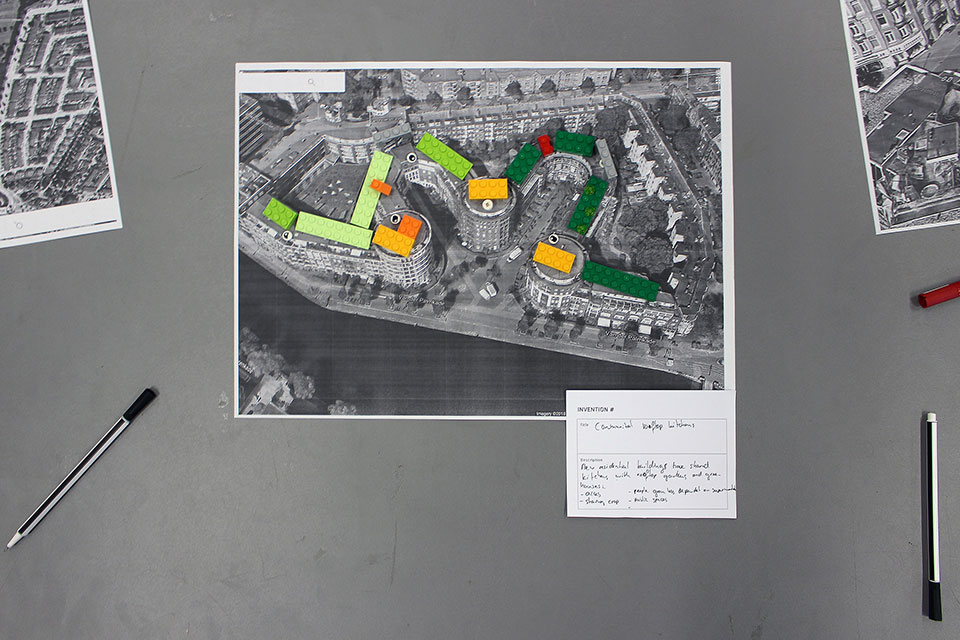 Imagery ©2018
INVENTION #
Title Communal rooftop kitchens
Description
New residential buildings have shared
kitchens with rooftop gardens and green-
houses:
- people grow less dependent on supermarkets
- sharing crop - public spaces